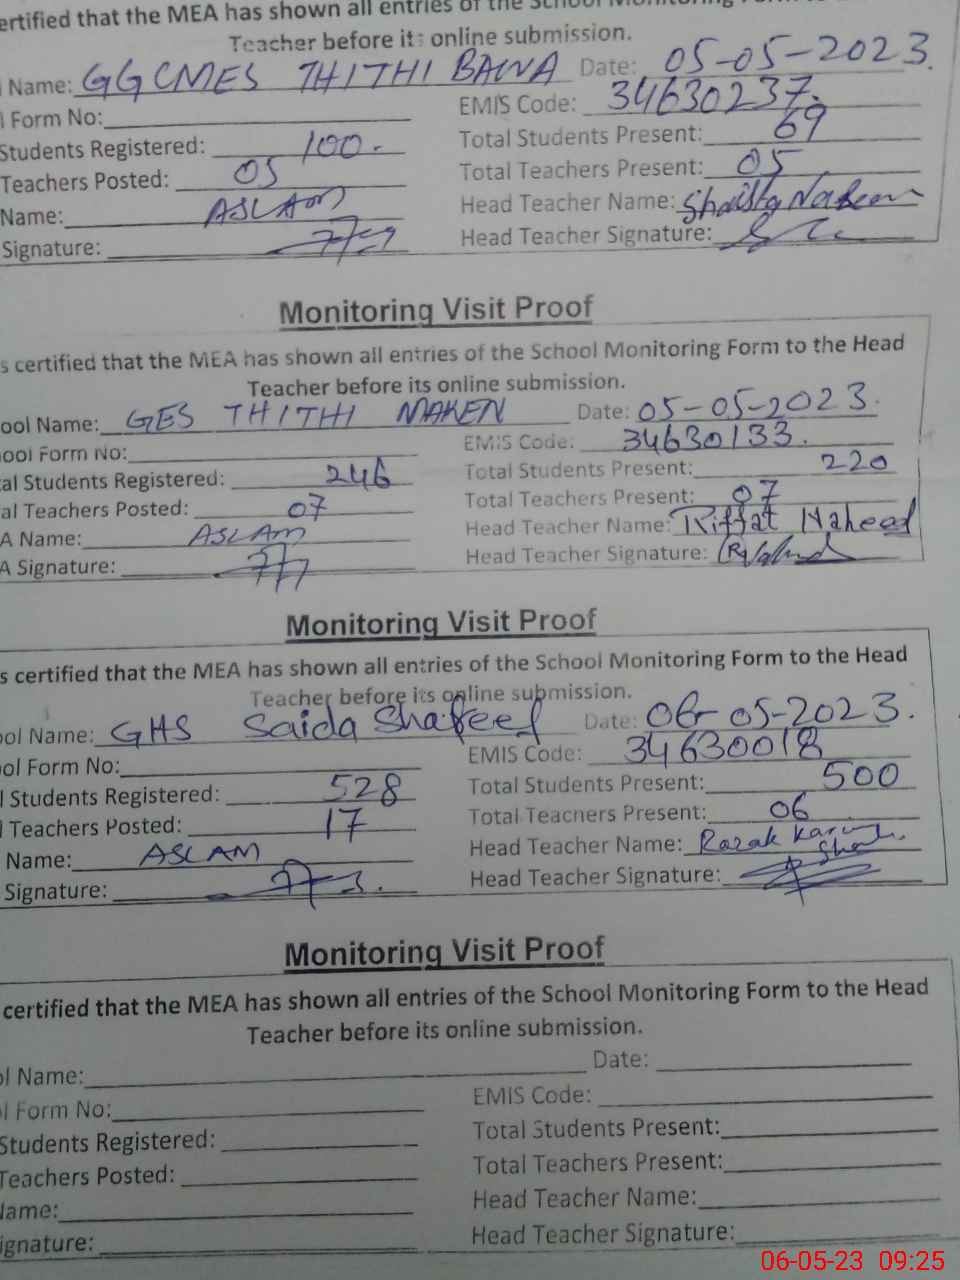 ertified that the MEA has shown all entries of the School Monitoring Form to
Teacher before its online submission.
Name: GGCMES THITHI BAWA Date: 05-05-2023.
l Form No: EMIS Code: 34630237.
Students Registered: 100. Total Students Present: 69
Teachers Posted: 05 Total Teachers Present: 05
Name: ASLAM Head Teacher Name: Shaista
Signature: Head Teacher Signature:
Monitoring Visit Proof
s certified that the MEA has shown all entries of the School Monitoring Form to the Head
Teacher before its online submission.
ool Name: GES THITHI MAKEN Date: 05-05-2023.
ool Form No: EMIS Code: 34630133.
al Students Registered: 246 Total Students Present: 220
al Teachers Posted: 07 Total Teachers Present: 07
A Name: ASLAM Head Teacher Name: Riffat Naheed
A Signature: Head Teacher Signature:
Monitoring Visit Proof
s certified that the MEA has shown all entries of the School Monitoring Form to the Head
Teacher before its online submission.
ool Name: GHS Saida Shareef Date: 06-05-2023.
ol Form No: EMIS Code: 34630018
l Students Registered: 528 Total Students Present: 500
l Teachers Posted: 17 Total Teacners Present: 06
Name: ASLAM Head Teacher Name: Razak
Signature: Head Teacher Signature:
Monitoring Visit Proof
certified that the MEA has shown all entries of the School Monitoring Form to the Head
Teacher before its online submission.
ol Name: Date:
l Form No: EMIS Code:
Students Registered: Total Students Present:
Teachers Posted: Total Teachers Present:
Name: Head Teacher Name:
ignature: Head Teacher Signature:
06-05-23 09:25